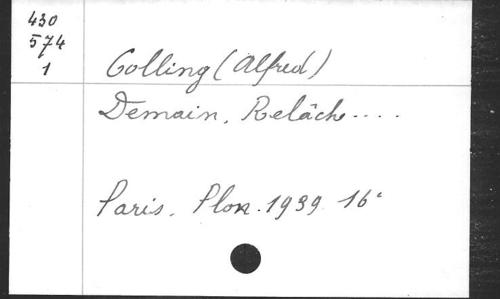 430
574
1
Colling (Alfred)
Demain, Relâche....
Paris. Plon. 1939 16°